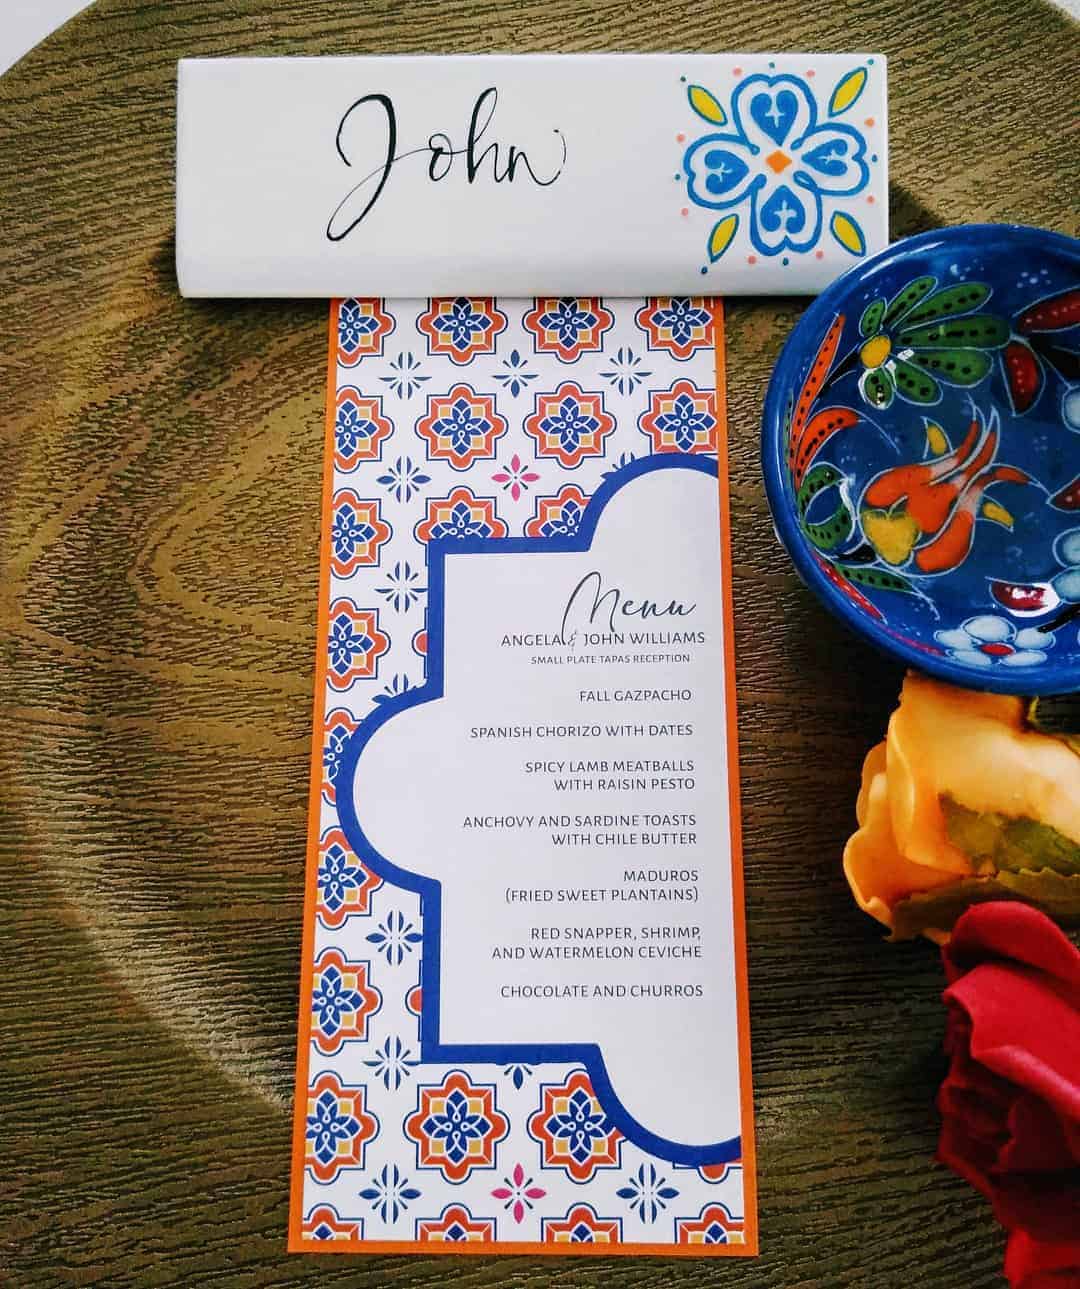 John
Menu
ANGELA & JOHN WILLIAMS
SMALL PLATE TAPAS RECEPTION
FALL GAZPACHO
SPANISH CHORIZO WITH DATES
SPICY LAMB MEATBALLS
WITH RAISIN PESTO
ANCHOVY AND SARDINE TOASTS
WITH CHILE BUTTER
MADUROS
(FRIED SWEET PLANTAINS)
RED SNAPPER, SHRIMP,
AND WATERMELON CEVICHE
CHOCOLATE AND CHURROS